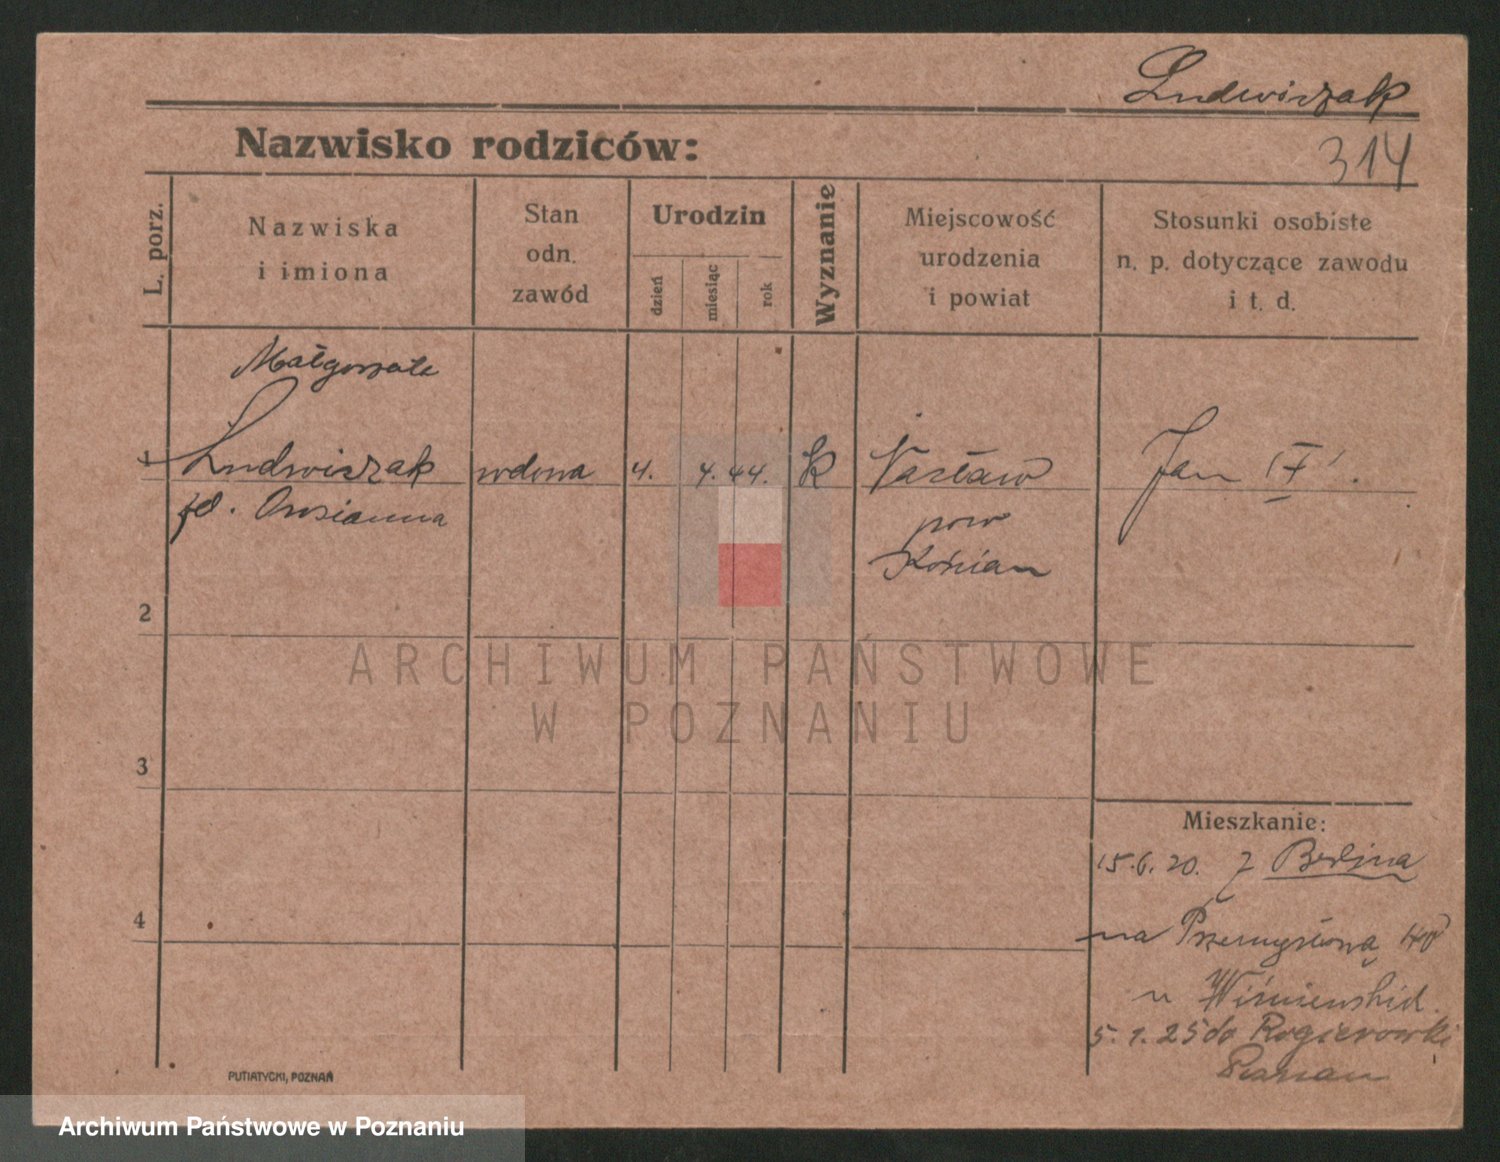 Ludwiczak
Nazwisko rodziców:
314
L. porz.
Nazwiska
i imiona
Stan
odn.
zawód
Urodzin
dzień
miesiąc
rok
Wyznanie
Miejscowość
urodzenia
i powiat
Stosunki osobiste
n. p. dotyczące zawodu
i t. d.
Małgorzata
1 Ludwiczak wdowa 4. 4. 44. k Jan
pow
2
ARCHIWUM PAŃSTWOWE
W POZNANIU
3
Mieszkanie:
15.6.20. z Berlina
4
na Przemysłową
u
5.1.25 do
PUTIATYCKI, POZNAŃ
Archiwum Państwowe w Poznaniu